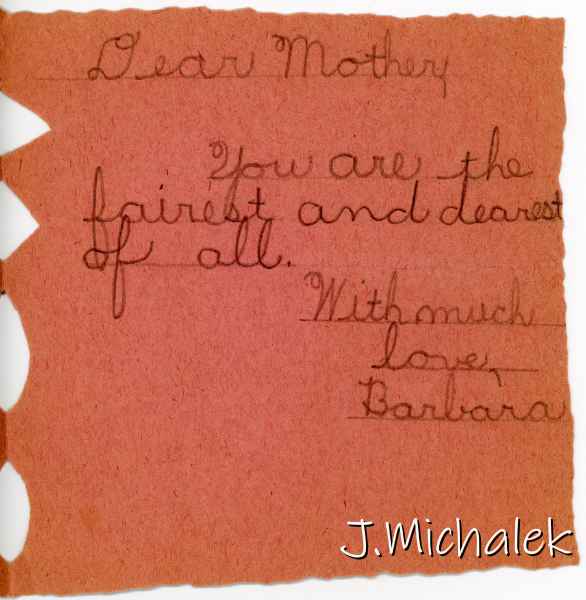 Dear Mother,
You are the
fairest and dearest
of all.
With much
love,
Barbara
J.Michalek